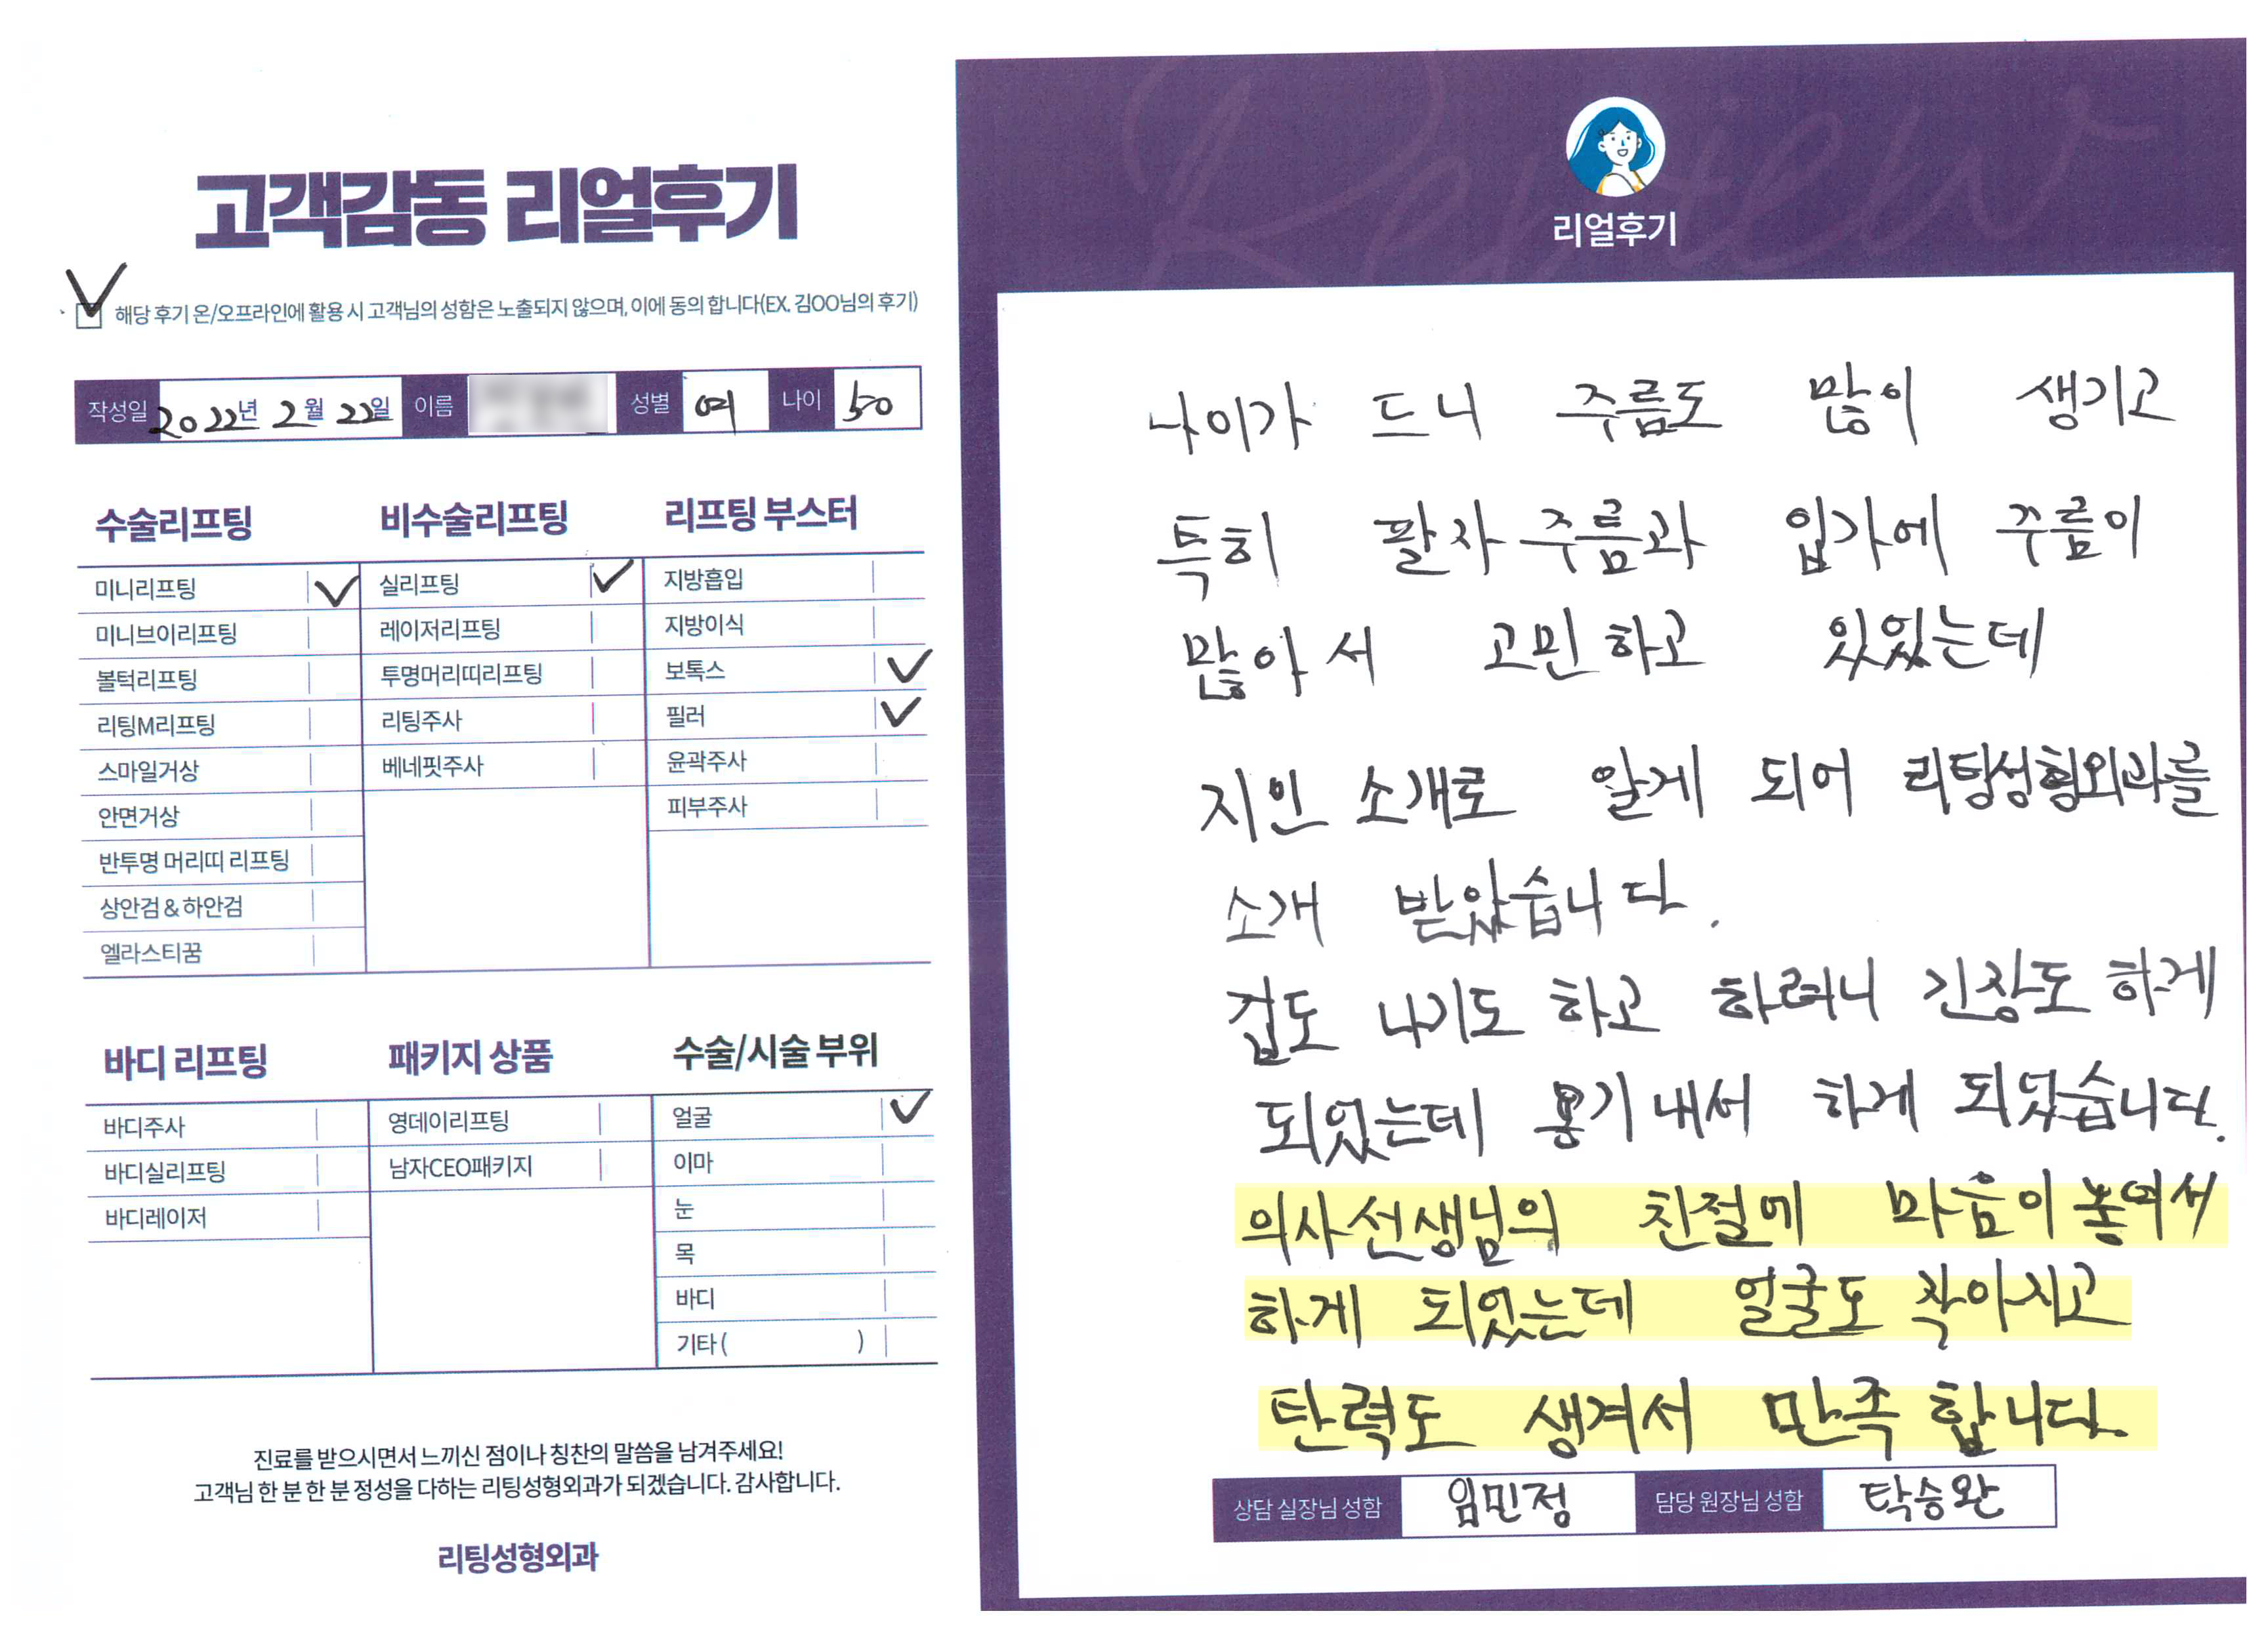 고객감동 리얼후기
해당 후기 온/오프라인에 활용 시 고객님의 성함은 노출되지 않으며, 이에 동의 합니다(EX. 김OO님의 후기)
작성일 2022년 2월 22일 이름 성별 여 나이 50
수술리프팅
미니리프팅
미니브이리프팅
볼턱리프팅
리팅M리프팅
스마일거상
안면거상
반투명 머리띠 리프팅
상안검 & 하안검
엘라스티꿈
비수술리프팅
실리프팅
레이저리프팅
투명머리띠리프팅
리팅주사
베네핏주사
리프팅 부스터
지방흡입
지방이식
보톡스
필러
윤곽주사
피부주사
바디 리프팅
바디주사
바디실리프팅
바디레이저
패키지 상품
영데이리프팅
남자CEO패키지
수술/시술 부위
얼굴
이마
눈
목
바디
기타 ( )
진료를 받으시면서 느끼신 점이나 칭찬의 말씀을 남겨주세요!
고객님 한 분 한 분 정성을 다하는 리팅성형외과가 되겠습니다. 감사합니다.
리팅성형외과
Review
리얼후기
나이가 드니 주름도 많이 생기고
특히 팔자주름과 입가에 주름이
많아서 고민하고 있었는데
지인 소개로 알게 되어 리팅성형외과를
소개 받았습니다.
겁도 나기도 하고 하려니 긴장도 하게
되었는데 용기내서 하게 되었습니다.
의사선생님의 친절에 마음이 놓여서
하게 되었는데 얼굴도 작아지고
탄력도 생겨서 만족합니다.
상담 실장님 성함 임민정 담당 원장님 성함 탁승완